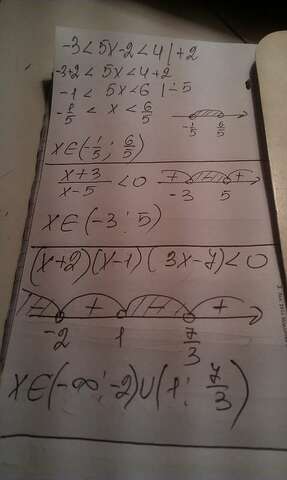 -3<5x-2<4|+2
-3+2<5x<4+2
-1< 5x<6 |÷5
-1/5 < x < 6/5
-1/5 6/5
x∈(-1/5; 6/5)
(x+3)/(x-5) <0
+ - +
-3 5
x∈(-3;5)
(x+2)(x-1)(3x-7)<0
- + - +
-2 1 7/3
x∈(-∞;-2)∪(1; 7/3)